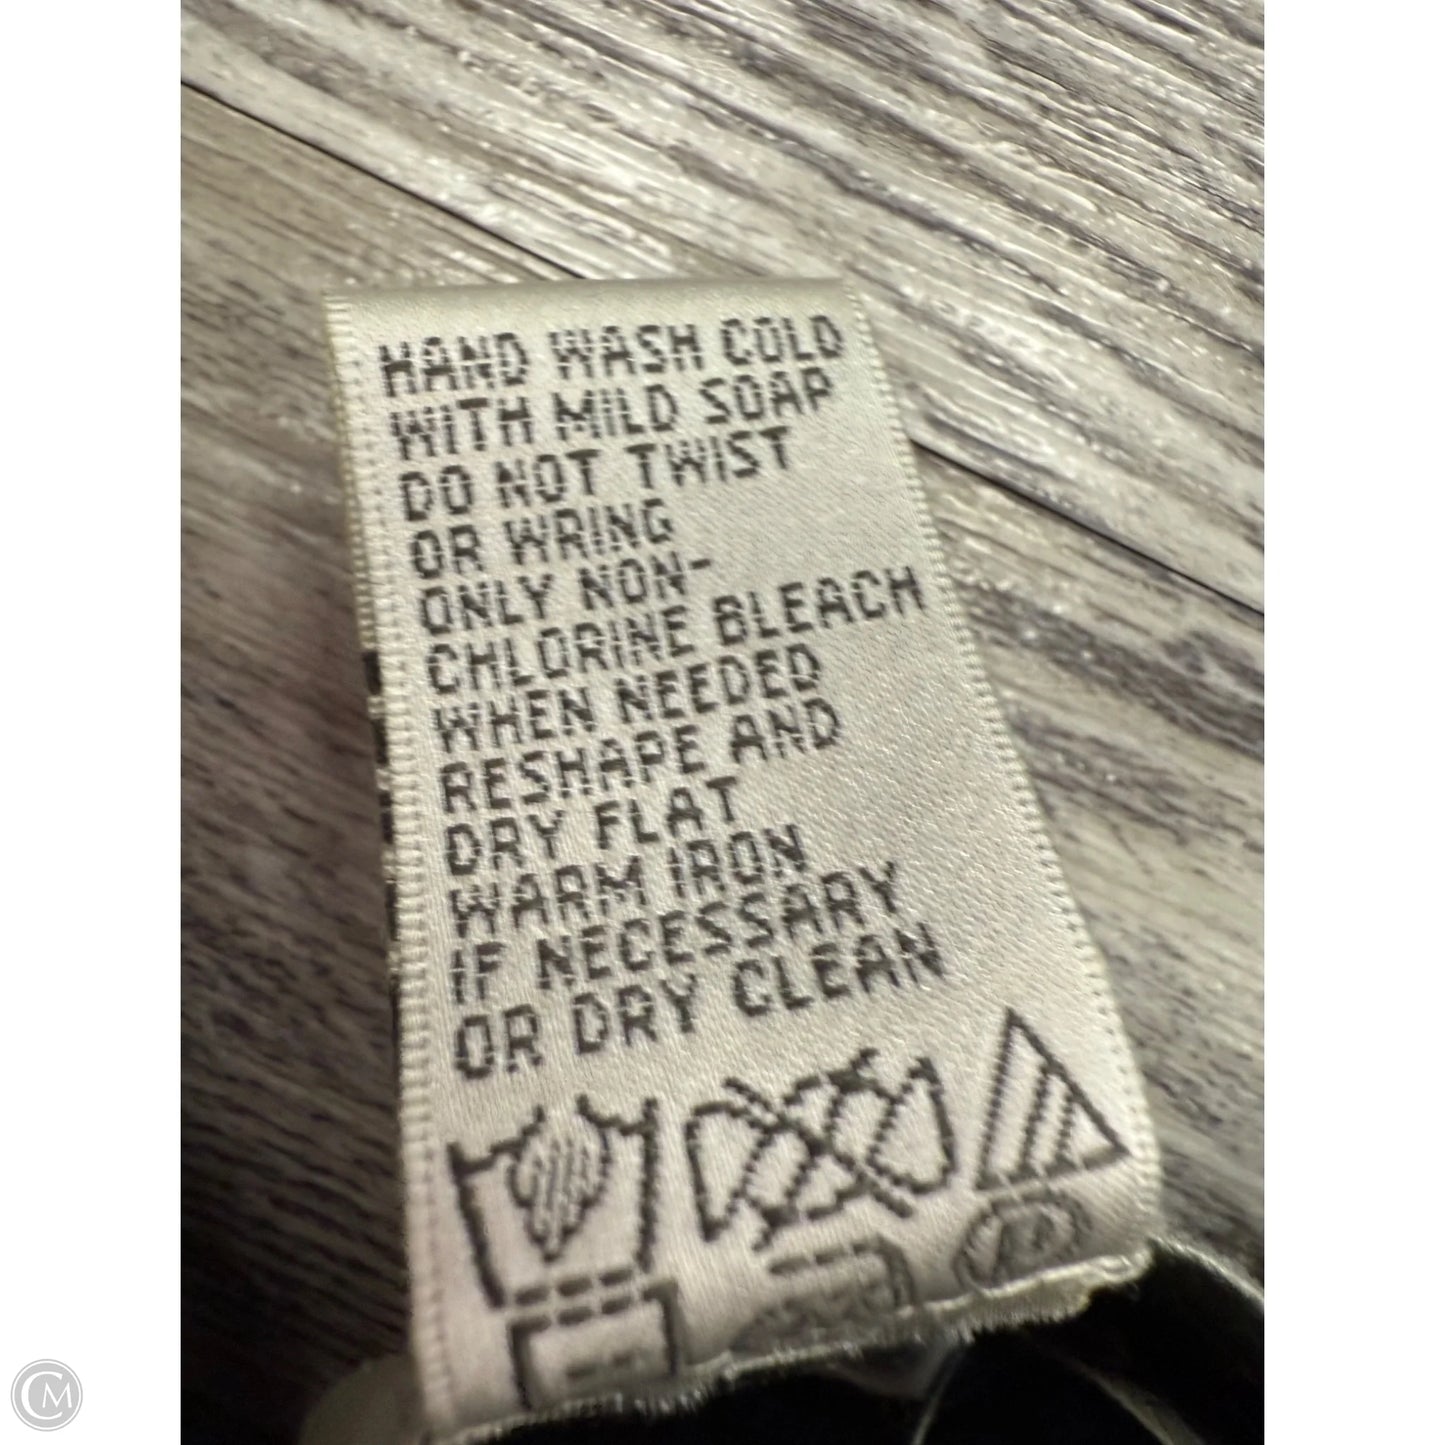 HAND WASH COLD
WITH MILD SOAP
DO NOT TWIST
OR WRING
ONLY NON-
CHLORINE BLEACH
WHEN NEEDED
RESHAPE AND
DRY FLAT
WARM IRON
IF NECESSARY
OR DRY CLEAN
P
CM